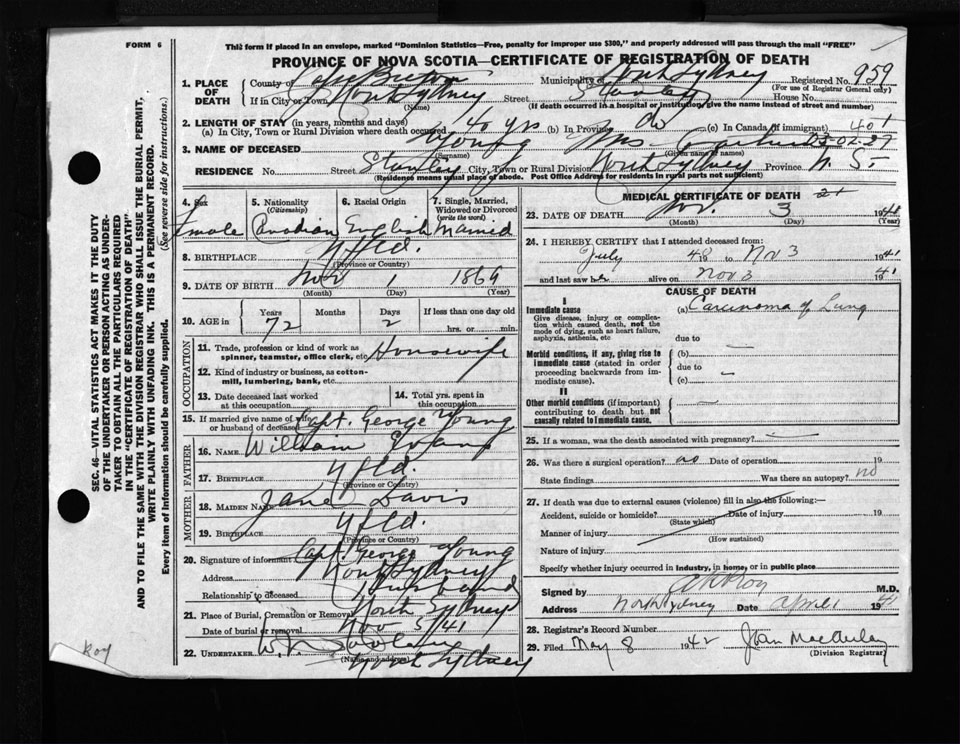 FORM 6
This form if placed in an envelope, marked "Dominion Statistics—Free, penalty for improper use $300," and properly addressed will pass through the mail "FREE"
PROVINCE OF NOVA SCOTIA—CERTIFICATE OF REGISTRATION OF DEATH
1. PLACE OF DEATH County of Cape Breton Municipality of North Sydney Registered No. 959
(For use of Registrar General only)
If in City or Town North Sydney Street Stanley House No.
(Name) (If death occurred in a hospital or institution, give the name instead of street and number)
2. LENGTH OF STAY (in years, months and days)
(a) In City, Town or Rural Division where death occurred 40 yrs (b) In Province do (c) In Canada (if immigrant) 40
3. NAME OF DECEASED Young Mrs. 03-02-29
(Surname) (Given name or names)
RESIDENCE No. Street Stanley City, Town or Rural Division North Sydney Province N. S.
(Residence means usual place of abode. Post Office Address for residents in rural parts not sufficient)
4. Sex
Female
5. Nationality
(Citizenship)
Canadian
6. Racial Origin
English
7. Single, Married, Widowed or Divorced
(write the word)
Married
8. BIRTHPLACE Nfld
(Province or Country)
9. DATE OF BIRTH Nov 1 1869
(Month) (Day) (Year)
10. AGE in Years Months Days If less than one day old
72 2 hrs. or min.
OCCUPATION
11. Trade, profession or kind of work as spinner, teamster, office clerk, etc. Housewife
12. Kind of industry or business, as cotton-mill, lumbering, bank, etc.
13. Date deceased last worked at this occupation
14. Total yrs. spent in this occupation
15. If married give name of wife or husband of deceased Capt. George Young
FATHER
16. NAME William
17. BIRTHPLACE Nfld.
(Province or Country)
MOTHER
18. MAIDEN NAME Jane Davis
19. BIRTHPLACE Nfld.
(Province or Country)
20. Signature of informant Capt. George Young
Address North Sydney
Relationship to deceased Husband
21. Place of Burial, Cremation or Removal North Sydney
Date of burial or removal Nov 5/41
22. UNDERTAKER
(Name and address) North Sydney
MEDICAL CERTIFICATE OF DEATH
23. DATE OF DEATH Nov. 3 1941
(Day) (Year)
24. I HEREBY CERTIFY that I attended deceased from:
July 1940 to Nov 3 1941
and last saw her alive on Nov 3 1941
CAUSE OF DEATH
I
Immediate cause (a) Carcinoma of Lung
Give disease, injury or complication which caused death, not the mode of dying, such as heart failure, asphyxia, asthenia, etc.
due to
Morbid conditions, if any, giving rise to immediate cause (stated in order proceeding backwards from immediate cause). (b)
due to
(c)
II
Other morbid conditions (if important) contributing to death but not causally related to immediate cause.
25. If a woman, was the death associated with pregnancy?
26. Was there a surgical operation? no Date of operation 19
State findings Was there an autopsy? no
27. If death was due to external causes (violence) fill in also the following:—
Accident, suicide or homicide? Date of injury 19
(State which)
Manner of injury
(How sustained)
Nature of injury
Specify whether injury occurred in industry, in home, or in public place
Signed by M.D.
Address North Sydney Date April 1 194
28. Registrar's Record Number
29. Filed May 8 1942
(Division Registrar)
SEC. 46—VITAL STATISTICS ACT MAKES IT THE DUTY
OF THE UNDERTAKER OR PERSON ACTING AS UNDERTAKER
TO OBTAIN ALL THE PARTICULARS REQUIRED
IN THE "CERTIFICATE OF REGISTRATION OF DEATH"
AND TO FILE THE SAME WITH THE DIVISION REGISTRAR WHO SHALL ISSUE THE BURIAL PERMIT,
WRITE PLAINLY WITH UNFADING INK. THIS IS A PERMANENT RECORD.
Every item of information should be carefully supplied. (See reverse side for instructions.)
Roy